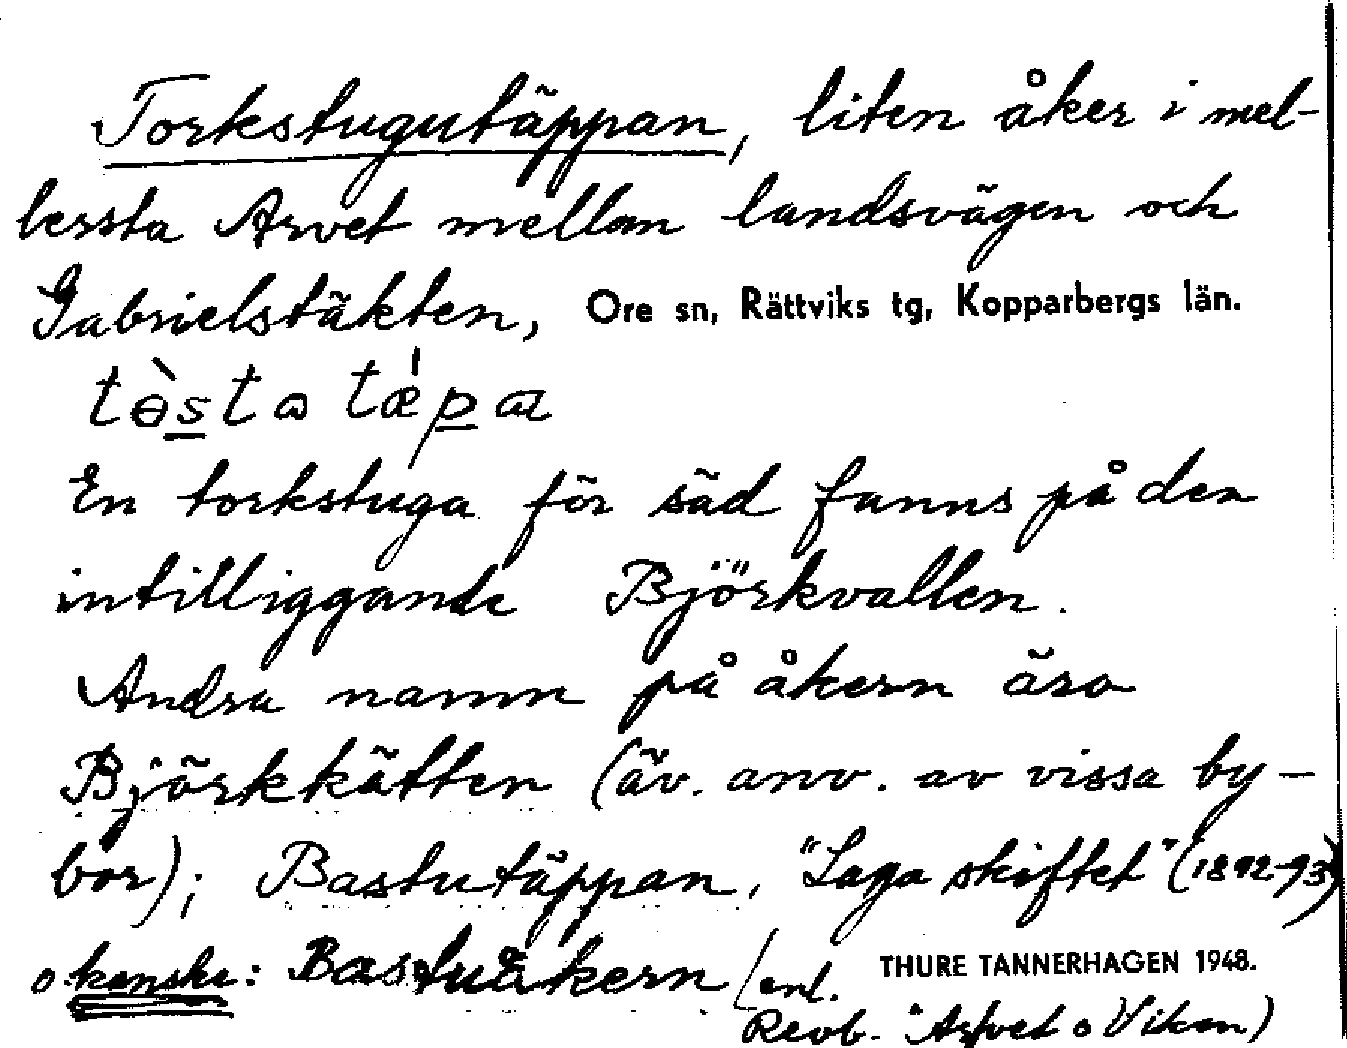 Torkstugutäppan, liten åker i mel-
lersta Arvet mellan landsvägen och
Gabrielstäkten, Ore sn, Rättviks tg, Kopparbergs län.
tɵ̀sta tǽpaz
En torkstuga för säd fanns på den
intilliggande Björkvallen.
Andra namn på åkern äro
Björkkätten (äv. anv. av vissa by-
bor); Bastutäppan, "Laga skiftet" (1892-93)
o kanske: Bastuåkern (enl. THURE TANNERHAGEN 1948.
Revb. "Arvet o Vikan)